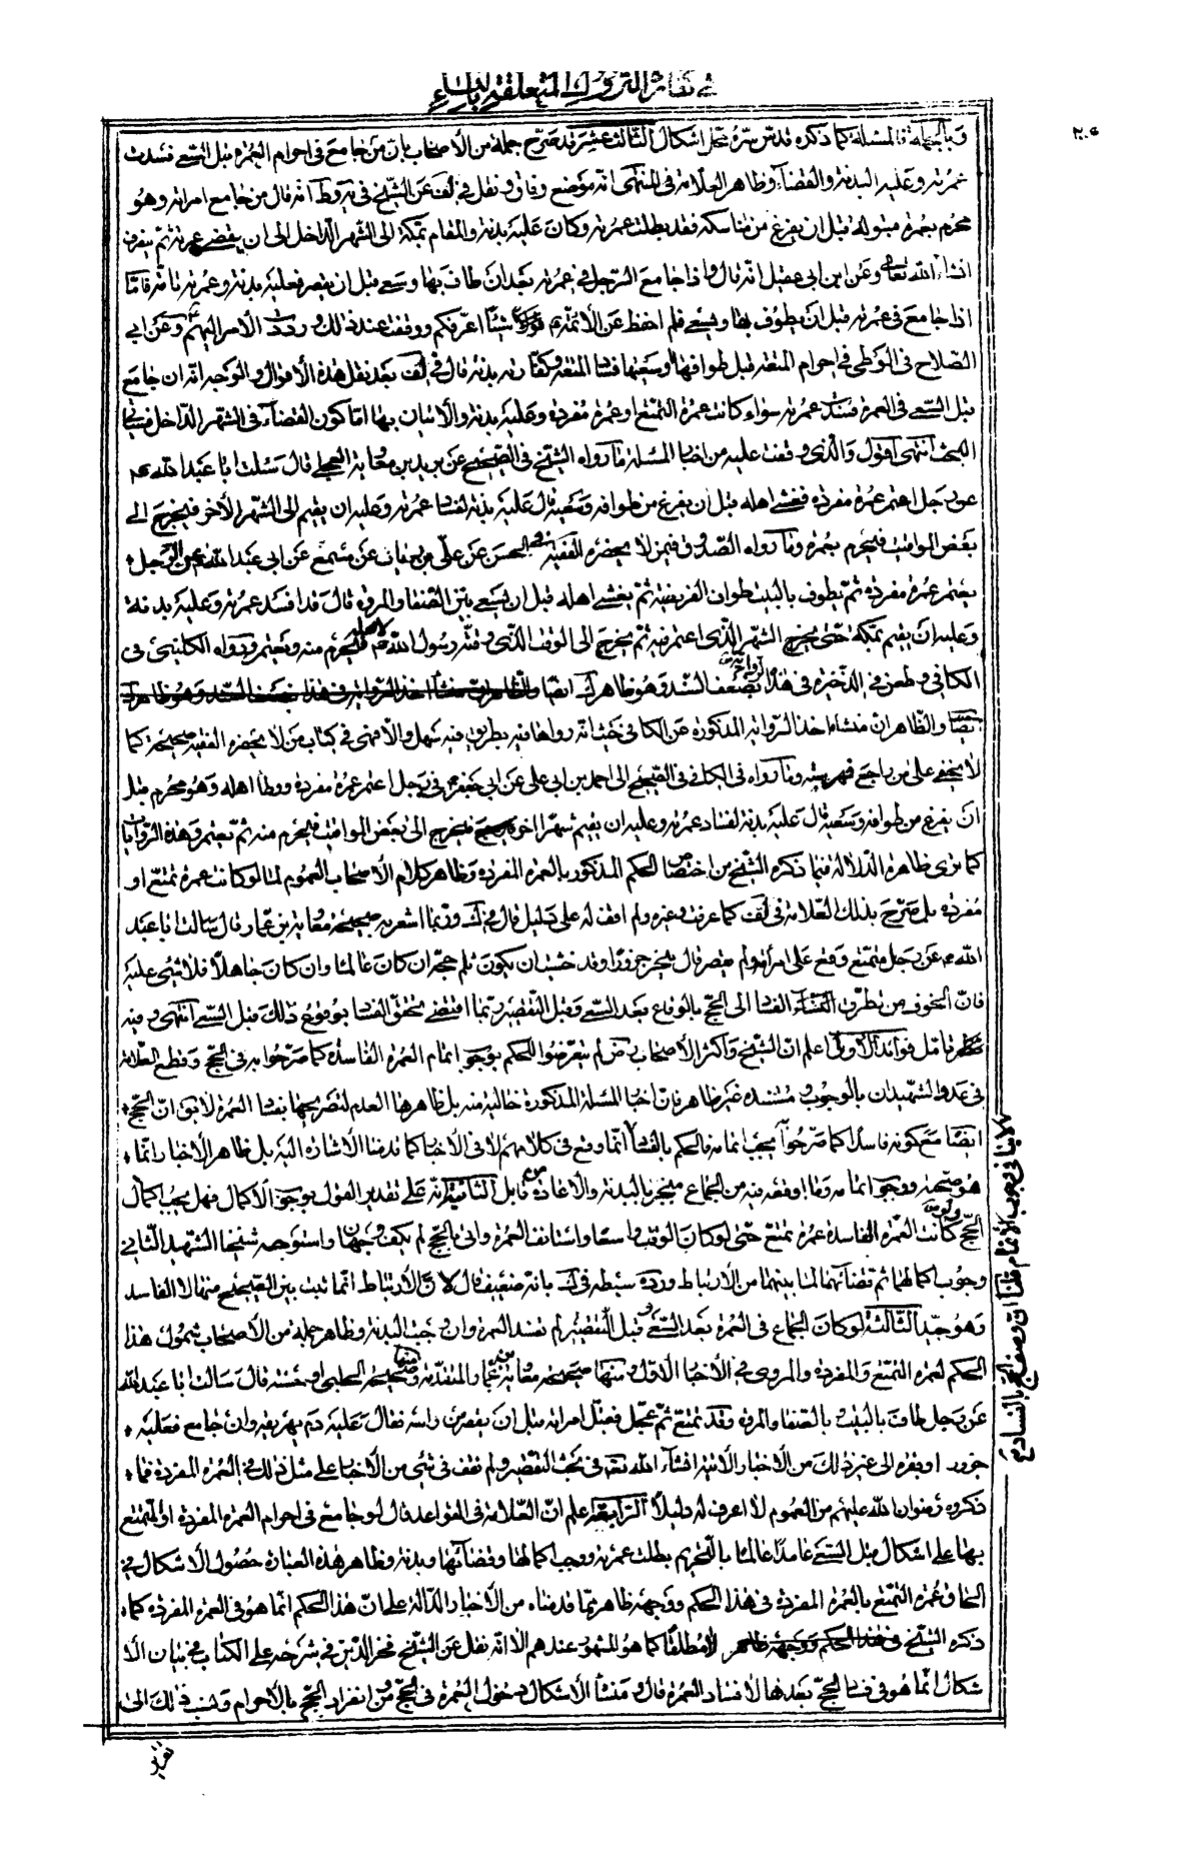 في كفائر التروك المتعلقة بالنساء
٢٠٤
وبالجملة فالمسئلة كما ذكره قدس سره محل اشكال الثالث عشر قد صرح جملة من الأصحاب بان من جامع في احرام العمرة قبل السعي فسدت
عمرته وعليه البدنة والقضاء وظاهر العلامة في المنتهى انه موضع وفاق ونقل في لف عن الشيخ في يه وط انه قال من جامع امراته وهو
محرم بعمرة مبتولة قبل ان يفرغ من مناسكه فقد بطلت عمرته وكان عليه بدنة والمقام بمكة الى الشهر الداخل الى ان يقضي عمرته ثم ينصرف
انشاء الله تعالى وعن ابن ابي عقيل انه قال واذا جامع الرجل في عمرته بعد ان طاف بها وسعى قبل ان يقصر فعليه بدنة وعمرته تامة فاما
اذا جامع في عمرته قبل ان يطوف بها ويسعى فلم احفظ عن الائمة شيئا اعرفكم ووقفت عند ذلك ورددت الأمر اليهم وعن ابي
الصلاح في الوطي في احرام المتعة قبل طوافها وسعيها فساد المتعة وكفارته بدنة قال في لف بعد نقل هذه الأقوال والوجه انه ان جامع
قبل السعي في العمرة فسدت عمرته سواء كانت عمرة التمتع او عمرة مفردة وعليه بدنة والاتيان بها اما كون القضاء في الشهر الداخل فسيأتي
البحث انتهى اقول والذي وقفت عليه من اخبار المسئلة ما رواه الشيخ في الصحيح عن بريد بن معاوية العجلي قال سئلت ابا عبد الله ع
عن رجل اعتمر عمرة مفردة فغشى اهله قبل ان يفرغ من طوافه وسعيه قال عليه بدنة لفساد عمرته وعليه ان يقيم الى الشهر الأخر فيخرج الى
بعض المواقيت فيحرم بعمرة وما رواه الصدوق فيمن لا يحضره الفقيه الحسن عن علي بن رئاب عن مسمع عن ابي عبد الله ع في الرجل
يعتمر عمرة مفردة ثم يطوف بالبيت طواف الفريضة ثم يغشى اهله قبل ان يسعى بين الصفا والمروة قال قد افسد عمرته وعليه بدنة
وعليه ان يقيم بمكة حتى يخرج الشهر الذي اعتمر فيه ثم يخرج الى الوقت الذي وقته رسول الله ص لاهله فيحرم منه ويعتمر ورواه الكليني في
الكافي وطعن في الذخيرة في هذا الرواية بضعف السند وهو ظاهر ك
ايضا والظاهر ان منشاء اخذ الرواية المذكورة عن الكافي حيث انه رواها فيه بطريق فيه سهل والا فهي في كتاب من لا يحضره الفقيه صحيحة كما
لا يخفى على من راجع فهرسته وما رواه في الكافي في الصحيح الى احمد بن ابي علي عن ابي جعفر ع في رجل اعتمر عمرة مفردة ووطأ اهله وهو محرم قبل
ان يفرغ من طوافه وسعيه قال عليه بدنة لفساد عمرته وعليه ان يقيم شهرا اخر فيخرج الى بعض المواقيت فيحرم منه ثم يعتمر وهذه الروايات
كما ترى ظاهرة الدلالة فيما ذكره الشيخ من اختصاص الحكم المذكور بالعمرة المفردة وظاهر كلام الأصحاب العموم لما لو كانت عمرة تمتع او
مفردة بل صرح بذلك العلامة في لف كما عرفت وغيره ولم اقف له على دليل قال في ك وربما اشعر به صحيحة معاوية بن عمار قال سالت ابا عبد
الله ع عن رجل متمتع وقع على امرأته ولم يقصر قال ينحر جزورا وقد خشيت ان يكون ثلم حجه ان كان عالما وان كان جاهلا فلا شيء عليه
فان الخوف من تطرق الفساد الى الحج بالوقاع بعد السعي وقبل التقصير ربما اقتضى تحقق الفساد بوقوع ذلك قبل السعي انتهى وفيه
نظر تامل فوائد الأولى اعلم ان الشيخ وأكثر الأصحاب رض لم يتعرضوا الحكم بوجوب اتمام العمرة الفاسدة كما صرحوا به في الحج وقطع العلامة
في عد والشهيدان بالوجوب ومستنده غير ظاهر فان اخبار المسئلة المذكورة خالية منه بل ظاهرها العدم لتصريحها بفساد العمرة لا يق ان الحج
ايضا مع كونه فاسدا كما صرحوا يجب اتمامه فالحكم بالفساد انما وقع في كلامهم لا في الأخبار كما قدمنا الاشارة اليه بل ظاهر الأخبار انما
هو صحته ووجوب اتمامه وما اوقعه فيه من الجماع منجبر بالبدنة والاعادة من قابل الثانية انه على تقدير القول بوجوب الاكمال فهل يجب اكمال
الحج لو كانت العمرة الفاسدة عمرة تمتع حتى لو كان الوقت واسعا واستانف العمرة واتى بالحج لم يكف وجهان واستوجه شيخنا الشهيد الثاني
وجوب اكمالهما ثم قضائهما لما بينهما من الأرتباط ورده سبطه في ك بانه ضعيف قال لأن الأرتباط انما ثبت بين الصحيح منهما لا الفاسد
وهو جيد الثالثة لو كان الجماع في العمرة بعد السعي وقبل التقصير لم تفسد العمرة وان وجبت البدنة وظاهر جملة من الأصحاب شمول هذا
الحكم لعمرة التمتع والمفردة والمروي في الأخبار الأول ومنها صحيحة معاوية بن عمار المتقدمة ومنها صحيحة الحلبي او حسنته قال سالت ابا عبد الله
عن رجل طاف بالبيت بالصفا والمروة وقد تمتع ثم عجل فقبل امراته قبل ان يقصر من راسه فقال عليه دم يهريقه وان جامع فعليه
جزور او بقرة الى غير ذلك من الأخبار الأتية انشاء الله تعه في بحث التقصير ولم نقف في شيء من الأخبار على مثل ذلك في العمرة المفردة فما
ذكروه رضوان الله عليهم من العموم لا اعرف له دليلا الرابعة اعلم ان العلامة في القواعد قال لو جامع في احرام العمرة المفردة او المتمتع
بها على اشكال قبل السعي عامدا عالما بالتحريم بطلت عمرته ووجب اكمالها وقضائها وبدنة وظاهر هذه العبارة حصول الاشكال في
الحاق عمرة التمتع بالعمرة المفردة في هذا الحكم ووجهه ظاهر مما قدمناه من الأخبار الدالة على ان هذا الحكم انما هو في العمرة المفردة كما
ذكره الشيخ لا مطلقا كما هو المشهور عندهم الا انه نقل عن الشيخ فخر الدين في شرحه على الكتاب في بيان الا
شكال انما هو في فساد الحج بعدها لا فساد العمرة قال ومنشأ الأشكال دخول العمرة في الحج ومن انفراد الحج بالأحرام ونسب ذلك الى
تقرير